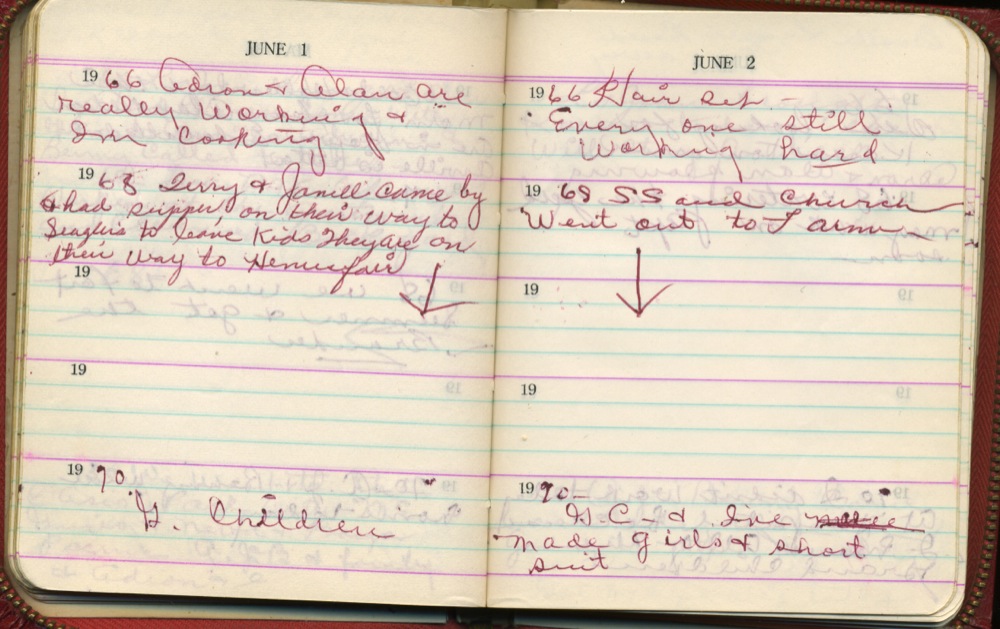 JUNE 1
1966 Adron & Alan are
really Working &
Im Cooking
1968 Jerry & Janell came by
& had supper on their way to
Seaguis to leave Kids They are on
their way to Hemisfair
19
19
1970
G. Children
JUNE 2
1966 Hair set -
Every one still
Working hard
1968 SS and Church
Went out to Farm
19
19
1970-
G.C. & I've
made girls & short
suit